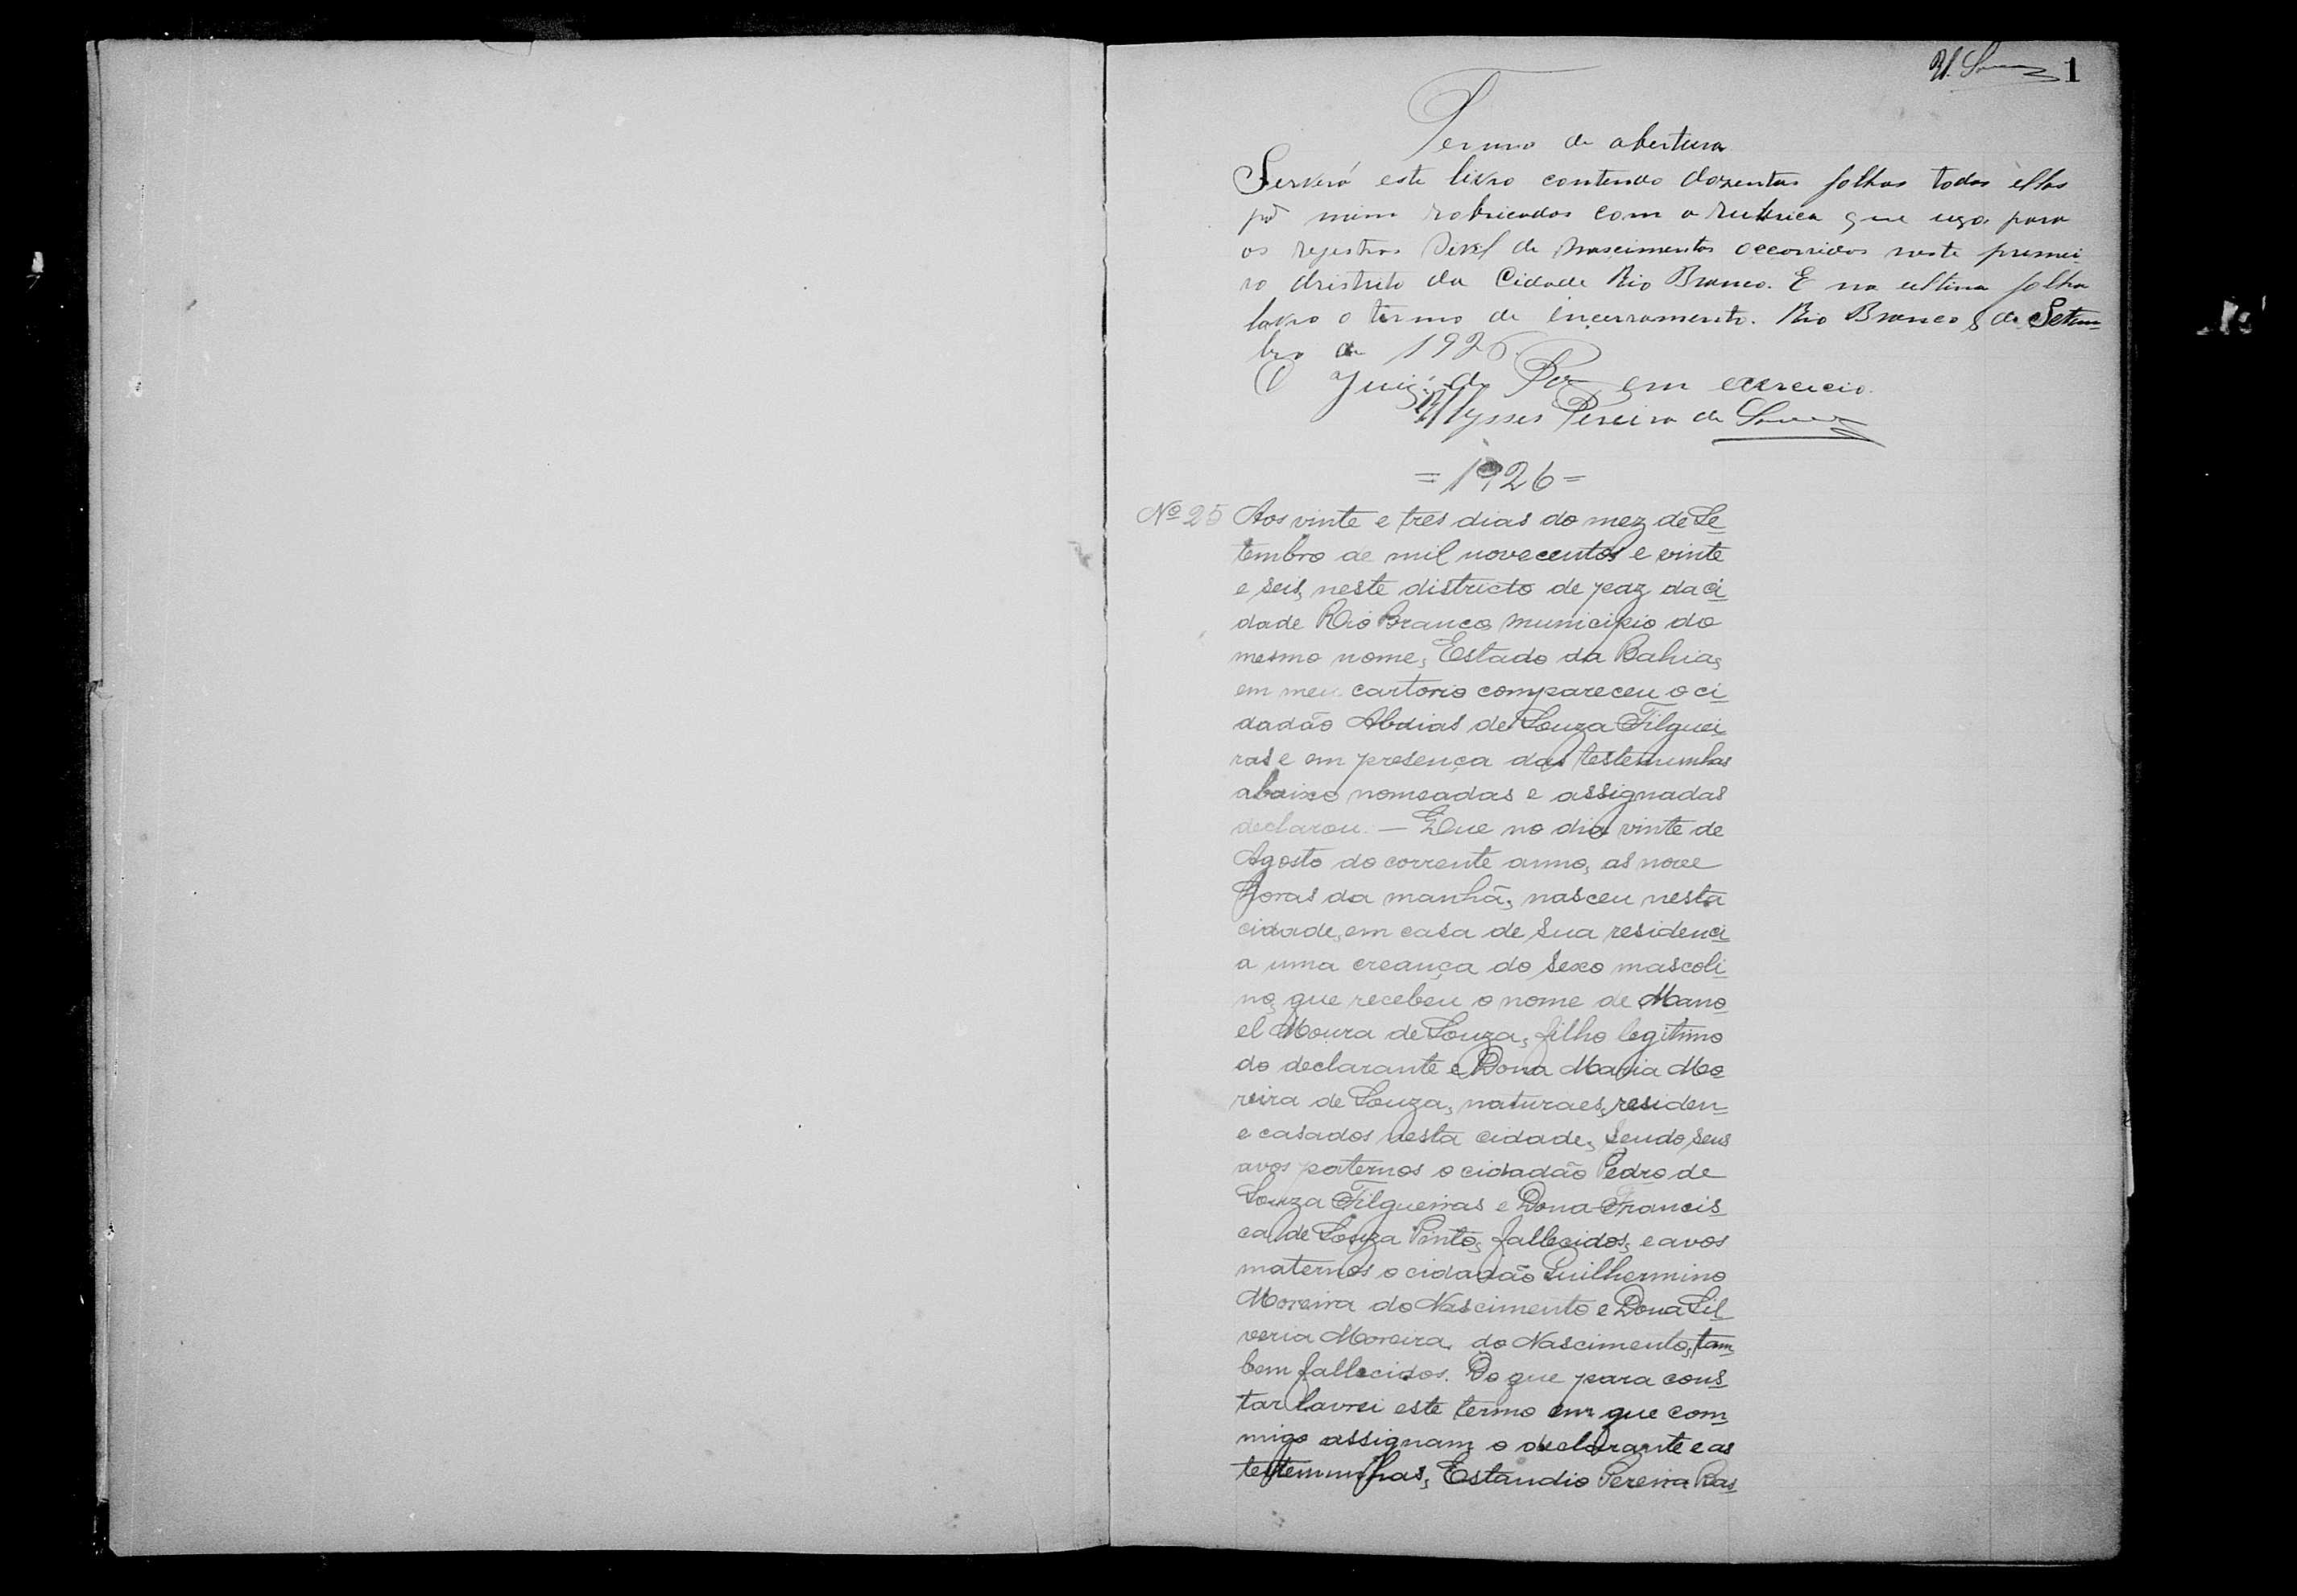 U. Souza 1
Termo de abertura
Servirá este livro contendo dozentas folhas todas ellas
por mim robricadas com a rubrica que uzo para
os registros Sivel de Nascimentos occorridos neste primei-
ro dristrito da Cidade Rio Branco. E na ultima folha
lavro o termo de encerramento. Rio Branco 8 de Setem-
bro de 1926.
O Juiz de Paz em exercicio.
Ulysses Pereira de Souza
= 1926 =
Nº 25 Aos vinte e tres dias do mez de Se
tembro de mil novecentos e vinte
e seis, neste districto de paz da ci
dade Rio Branco, municipio do
mesmo nome, Estado da Bahia,
em meu cartorio compareceu o ci
dadão Abdias de Souza Filguei
ras e em presença das testemunhas
abaixo nomeadas e assignadas
declarou: — Que no dia vinte de
Agosto do corrente anno, as nove
horas da manhã, nasceu nesta
cidade, em casa de sua residenci
a uma creança do sexo mascoli
no, que recebeu o nome de Mano
el Moura de Souza, filho legitimo
do declarante e Dona Maria Mo
reira de Souza, naturaes, residen
e casados nesta cidade, sendo seus
avos paternos o cidadão Pedro de
Souza Filgueiras e Dona Francis
ca de Souza Pinto, fallecidos, e avos
maternos o cidadão Guilhermino
Moreira do Nascimento e Dona Sil
veria Moreira do Nascimento, tam
bem fallecidos. Do que para cons
tar lavrei este termo em que com
migo assignam o declarante e as
testemunhas, Estandio Pereira Bas